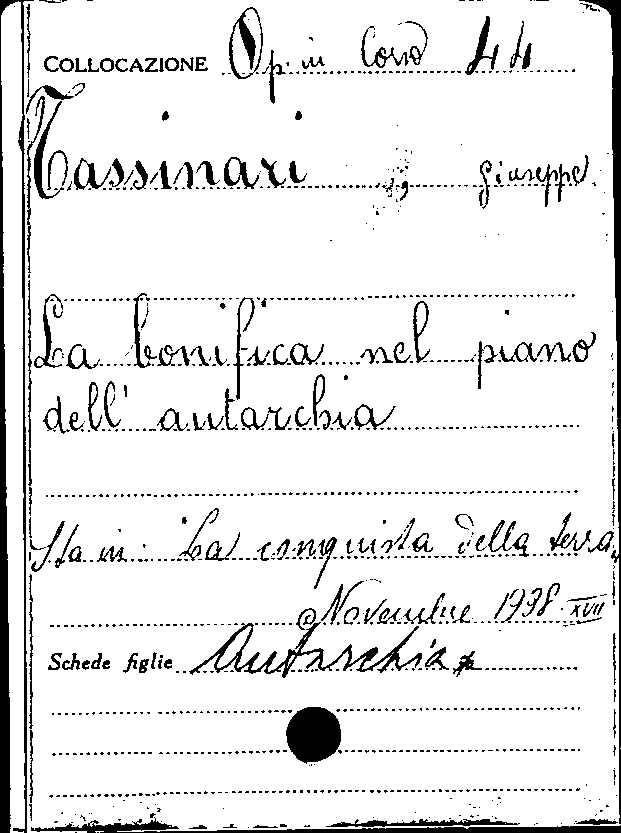 COLLOCAZIONE Op. in Corso 44
Tassinari, Giuseppe
La bonifica nel piano
dell' autarchia
Sta in: "La conquista della terra"
Novembre 1938 XVII
Schede figlie Autarchia